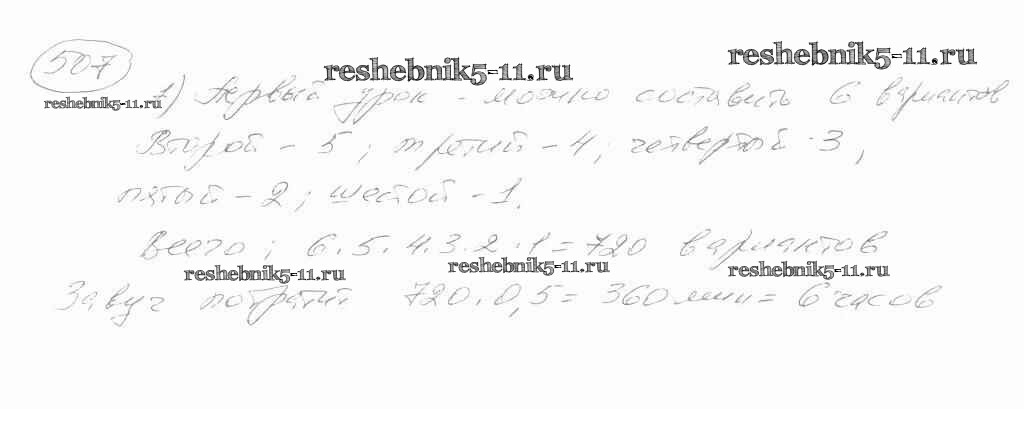 507
reshebnik5-11.ru
reshebnik5-11.ru
reshebnik5-11.ru
1) Первый урок - можно составить 6 вариантов
Второй - 5; третий - 4; четвертый - 3,
пятый - 2; шестой - 1.
Всего: 6·5·4·3·2·1 = 720 вариантов
reshebnik5-11.ru
reshebnik5-11.ru
reshebnik5-11.ru
Завуч потратит 720·0,5 = 360 мин = 6 часов